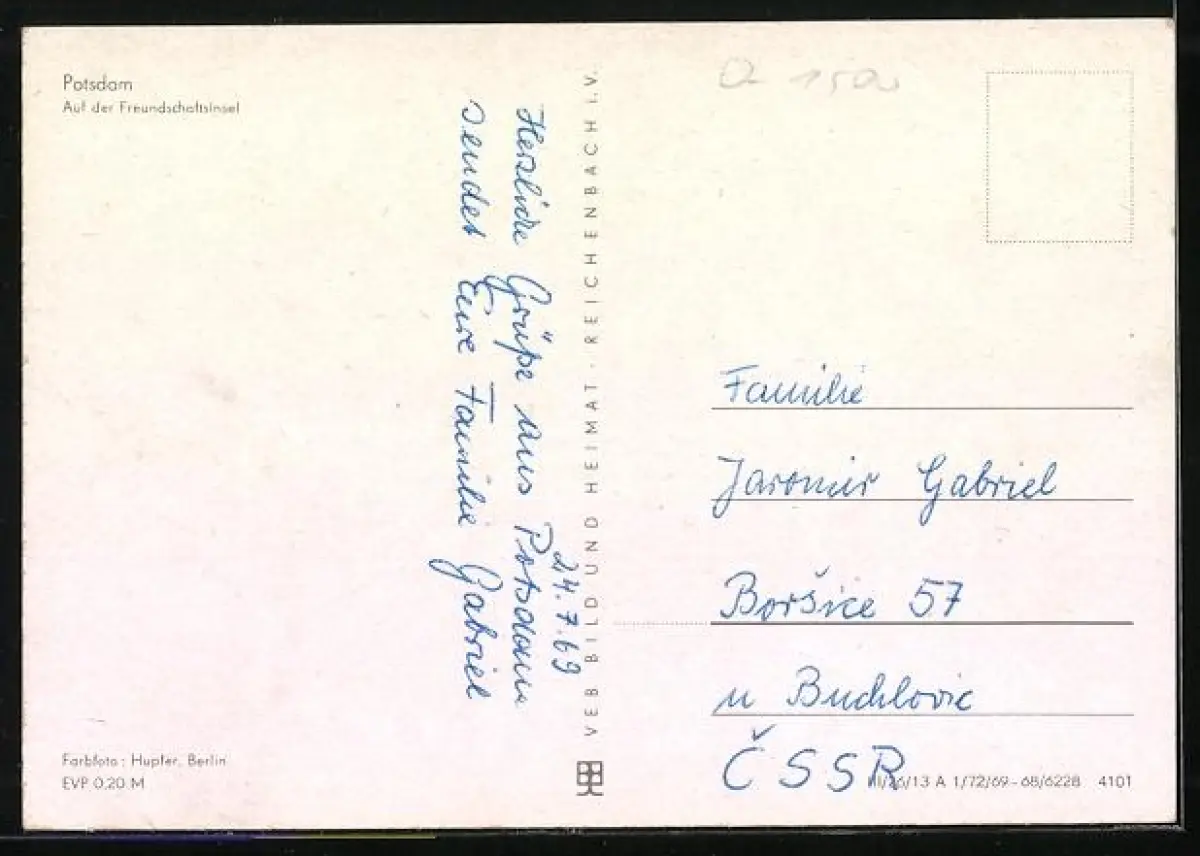 Potsdam
Auf der Freundschaftsinsel
24.7.69
Herzliche Grüße aus Potsdam
sendet Eure Familie Gabriel
VEB BILD UND HEIMAT · REICHENBACH I. V.
Familie
Jaromir Gabriel
Boršice 57
u Buchlovic
ČSSR
Farbfoto: Hupfer, Berlin
EVP 0,20 M
III/26/13 A 1/72/69 – 68/6228 4101